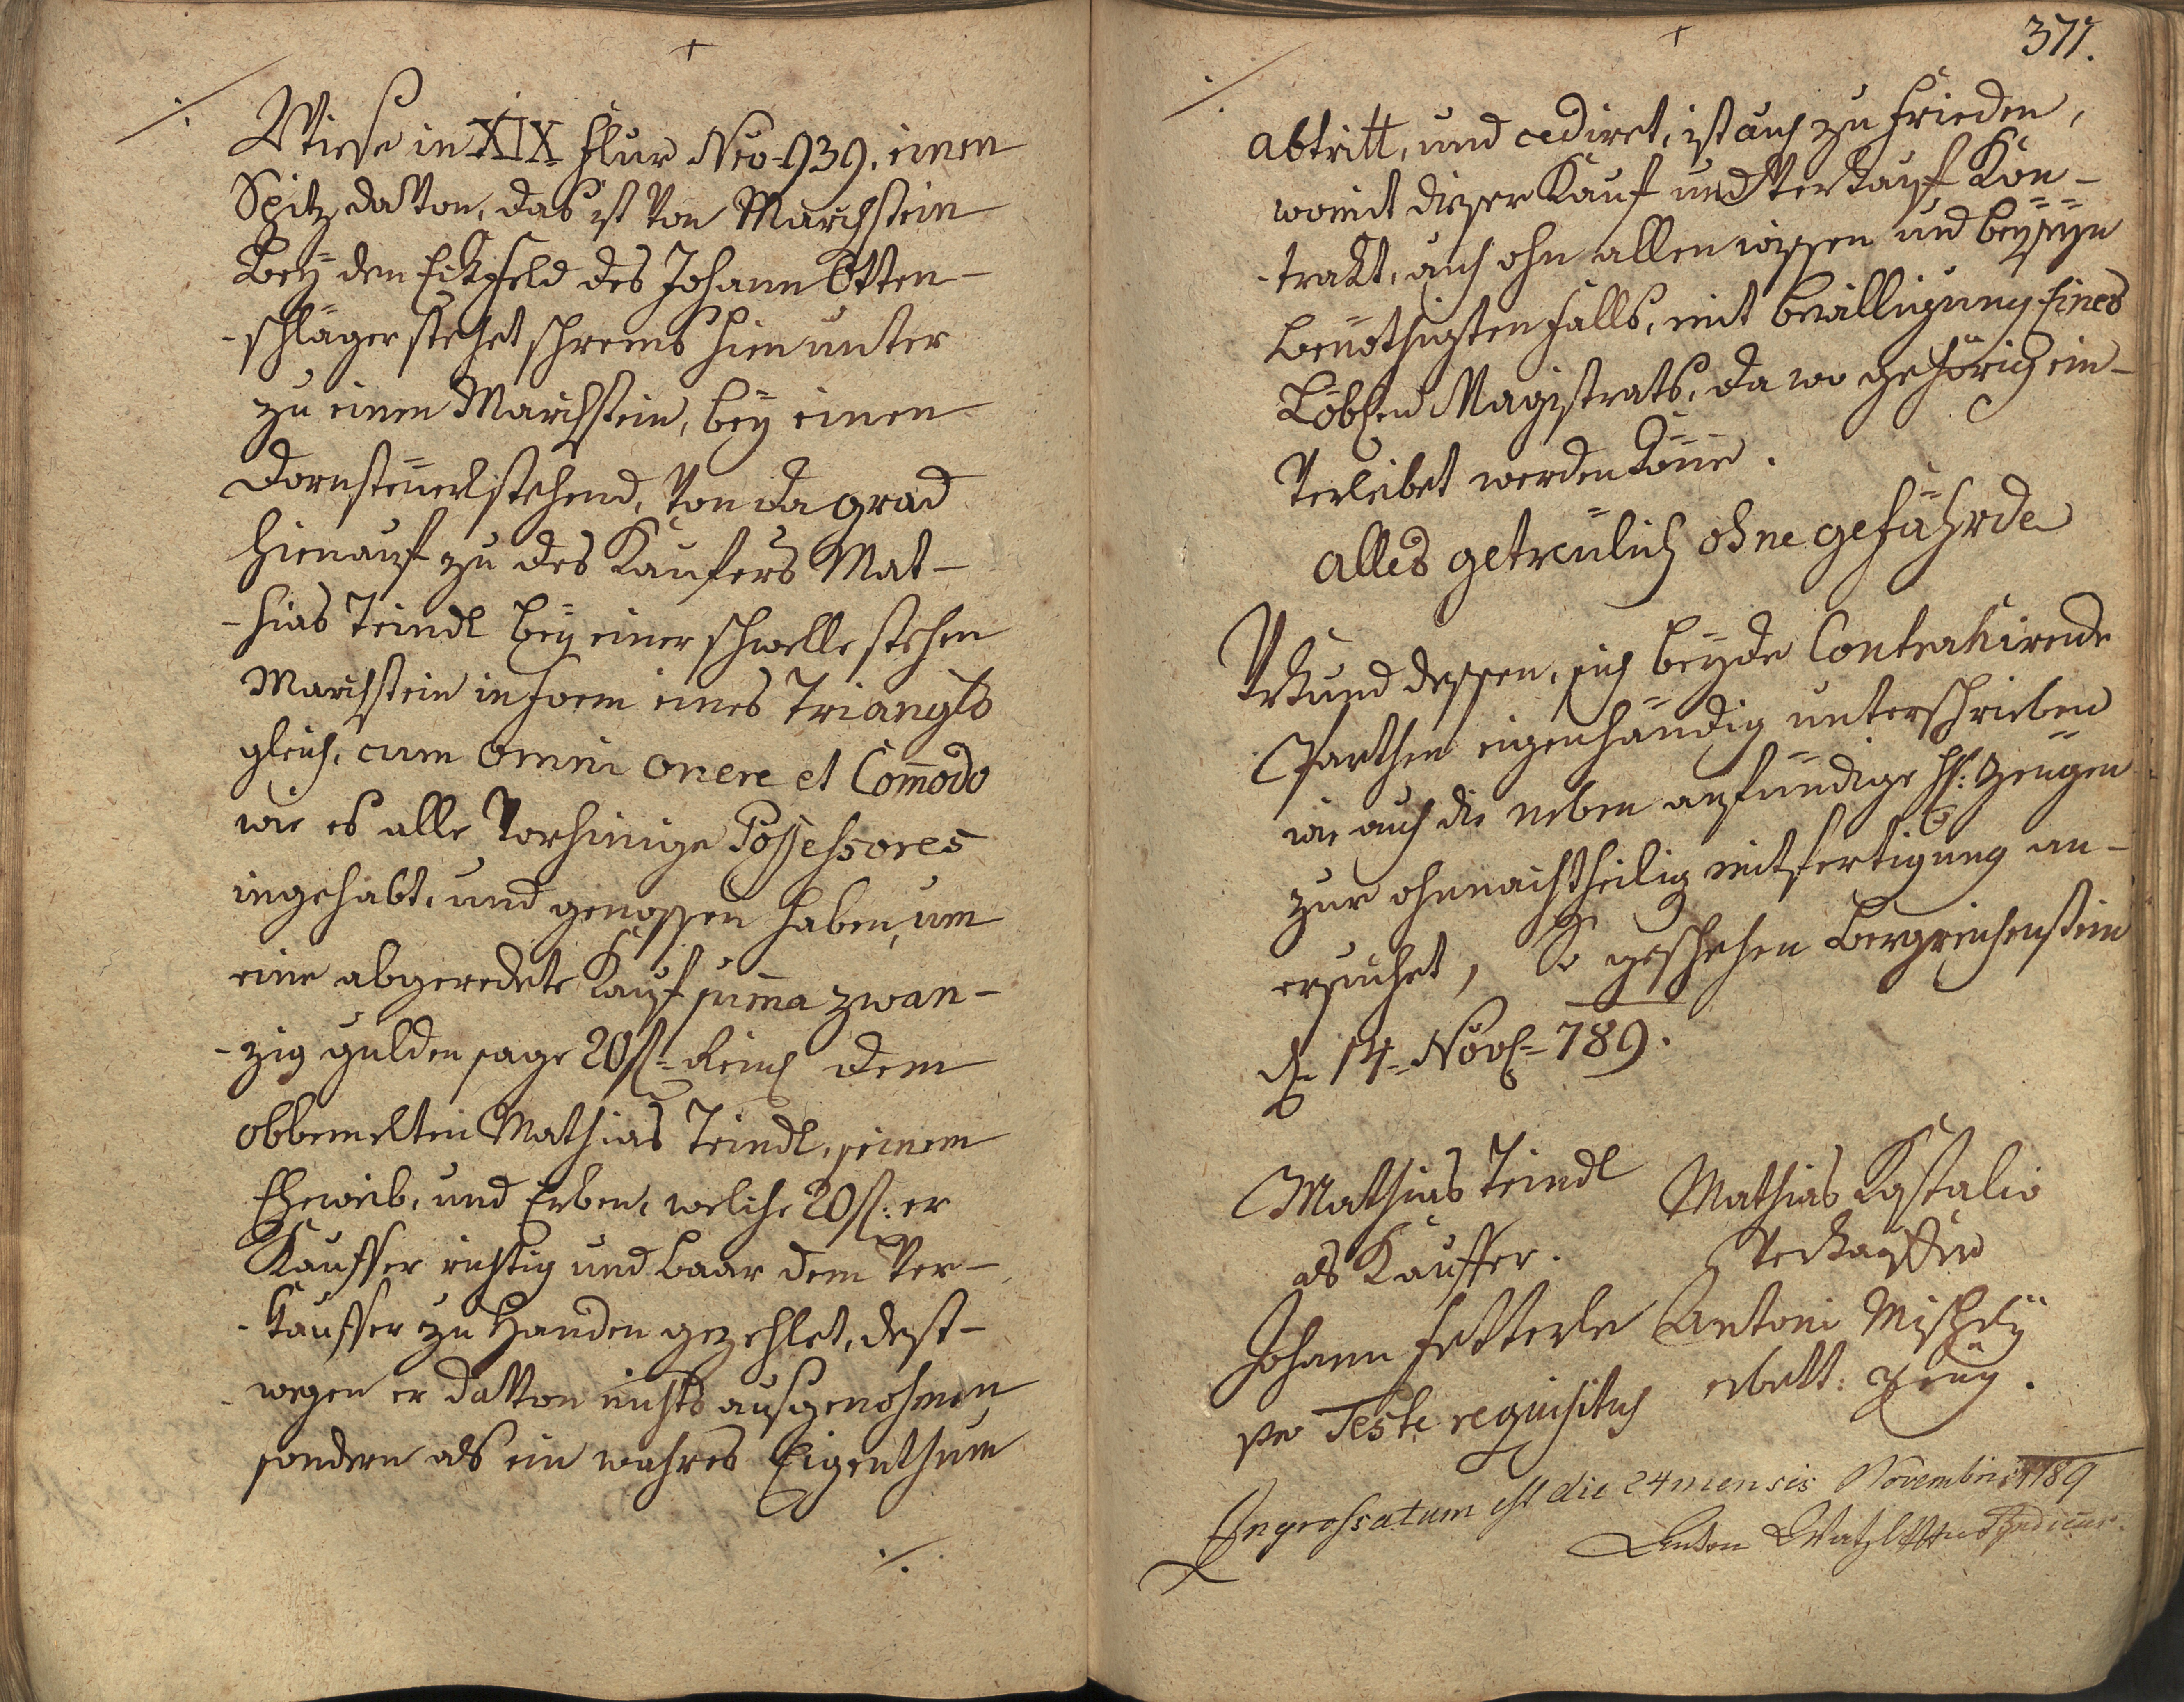 Wiese in XIX Flur Nro 939. einen
Spitz davon, das ist von Marchstein
bey den Eckfeld des Johann Otten-
-schläger stehet schrems hinunter
zu einen Marchstein, bey einen
Dornsteüerl stehend, von da grad
hienauf zu des Kaufers Mat-
-hias Teindl bey einer schwelle stehen
Marchstein in Form eines Triangls
gleich, cum omni onere et Com̄odo
wie es alle vorhinnige Possessores
ingehabt, und genossen haben, um
eine abgeredete Kauf sum̄a zwan-
-zig gulden sage 20 f. Reinch dem
obbemelten Mathias Teindl, seinem
Eheweib, und Erben, welche 20 f: er
Kauffer richtig und baar dem Ver-
-kauffer zu Handen gezehlet, dest-
wegen er davon nichts ausgenohmen
sondern als ein wahres Eigenthum
./.
377.
./.
abtritt, und cediret, ist auch zu frieden,
womit dieser Kauf und Verkauf Kon-
-trakt, auch ohn allen wissen und beyseyn
benöthigten falls, mit bewilligung Eines
Löbchen Magistrats, da wo gehörig ein-
verleibet werden könne.
alles getreülich ohne gefährde
Urkund dessen, sich beyde Contrahirende
Parthen eigenhändig unterschrieben
wie auch die neben anfündige H: Zeugen
zur ohnnachtheilig mitfertigung an-
ersuchet, So geschehen Bergreichenstein
d. 14. Nov. 789.
Mathias Teindl
als Kauffer.
Mathias Kastalio
Verkauffer
Johann Fetterle
pro Teste requisitus
Antoni Mischdÿ
erbett: Zeug.
Ingrossatum est die 24 mensis Novembris 1789
Anton Syndicus.